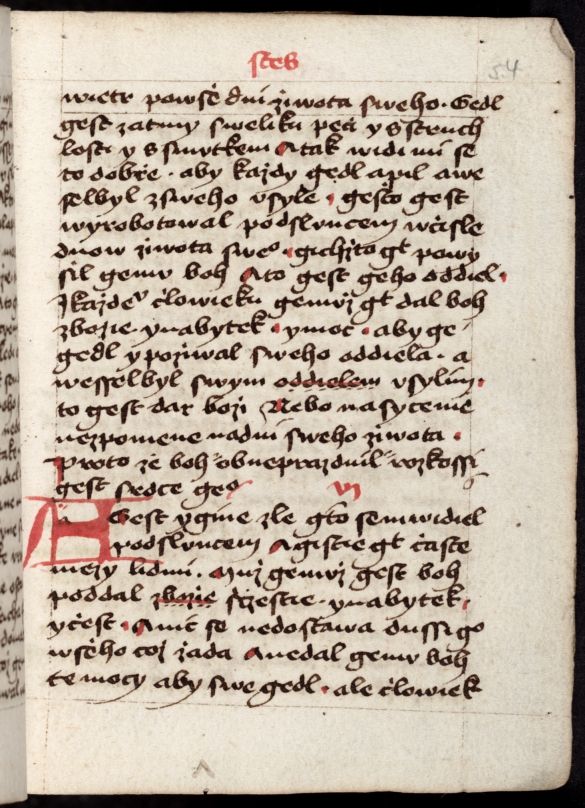 54
wietr powsě dni żiwota sweho · Gedl
gest zatmy sweliku peči y s struch
losti y s smutkem A tak widi mi se
to dobře · aby każdy gedl a pil a we
selbyl zsweho vsyle · gesto gest
wyrobotowal podsluncem wčisle
dnow żiwota sweº · gichżto gt powy
sil gemu boh A to gest geho oddiel ·
J każdeᵘ človieku gemuż gt dal boh
zbożie · ynabytek · ymoc · aby ge
gedl y pożiwal sweho oddiela · a
wesselbyl swym oddielem vsylim ·
to gest dar boži Nebo nasycenie
nezpomene nadni sweho żiwota ·
proto że boh obneprazdnil rozkossi
gest srdce geº
vj
A Gest y gine zle gto sem widiel
podsluncem A gistie gt časte
mezy lidmi · Muż gemuż gest boh
poddal zbozie sčzestie · ynabytek ·
yčest · A nic se nedostawa dussi go
wsěho coż żada A nedal gemu boh
te mocy aby swe gedl · ale človiek